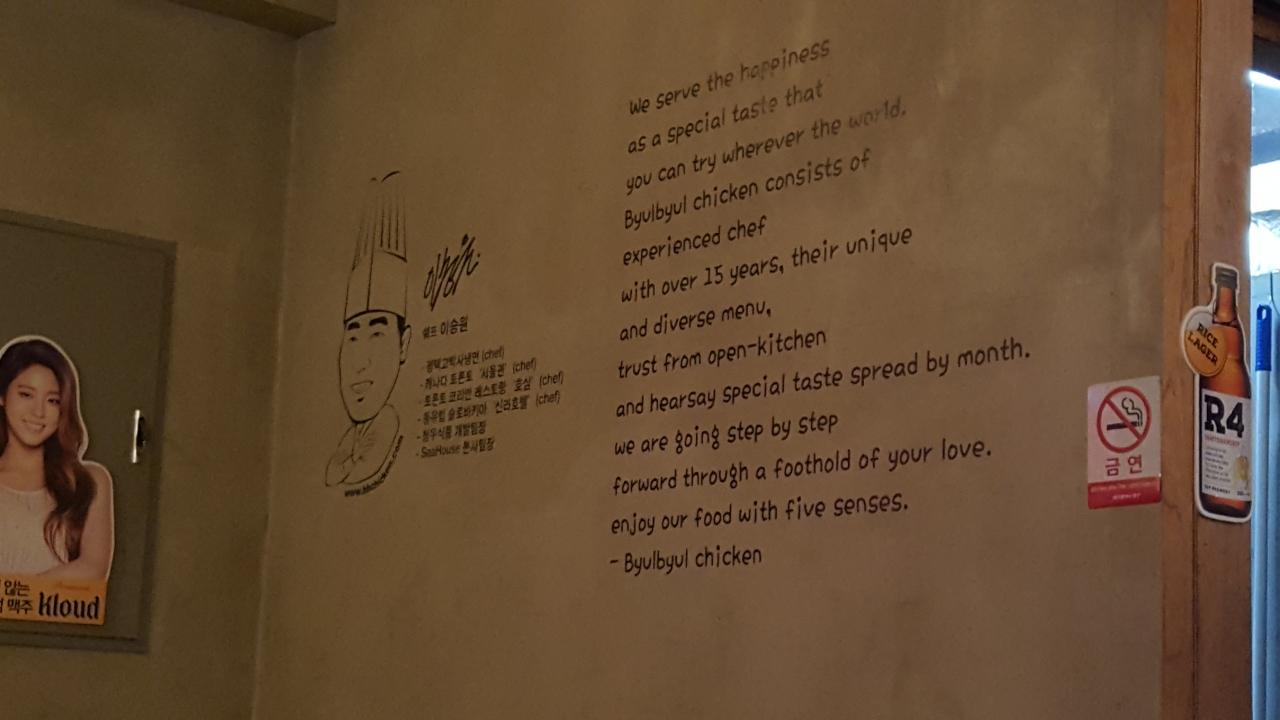 We serve the happiness
as a special taste that
you can try wherever the world.
Byulbyul chicken consists of
experienced chef
with over 15 years, their unique
and diverse menu,
trust from open-kitchen
and hearsay special taste spread by month.
we are going step by step
forward through a foothold of your love.
enjoy our food with five senses.
- Byulbyul chicken
쉐프 이승원
- 평택고박사냉면 (chef)
- 캐나다 토론토 '서울관' (chef)
- 토론토 코리안 레스토랑 '호심' (chef)
- 동유럽 슬로바키아 '신라호텔' (chef)
- 청우식품 개발팀장
- SeaHouse 본사팀장
않는
맥주 Kloud
금연
RICE
LAGER
R4